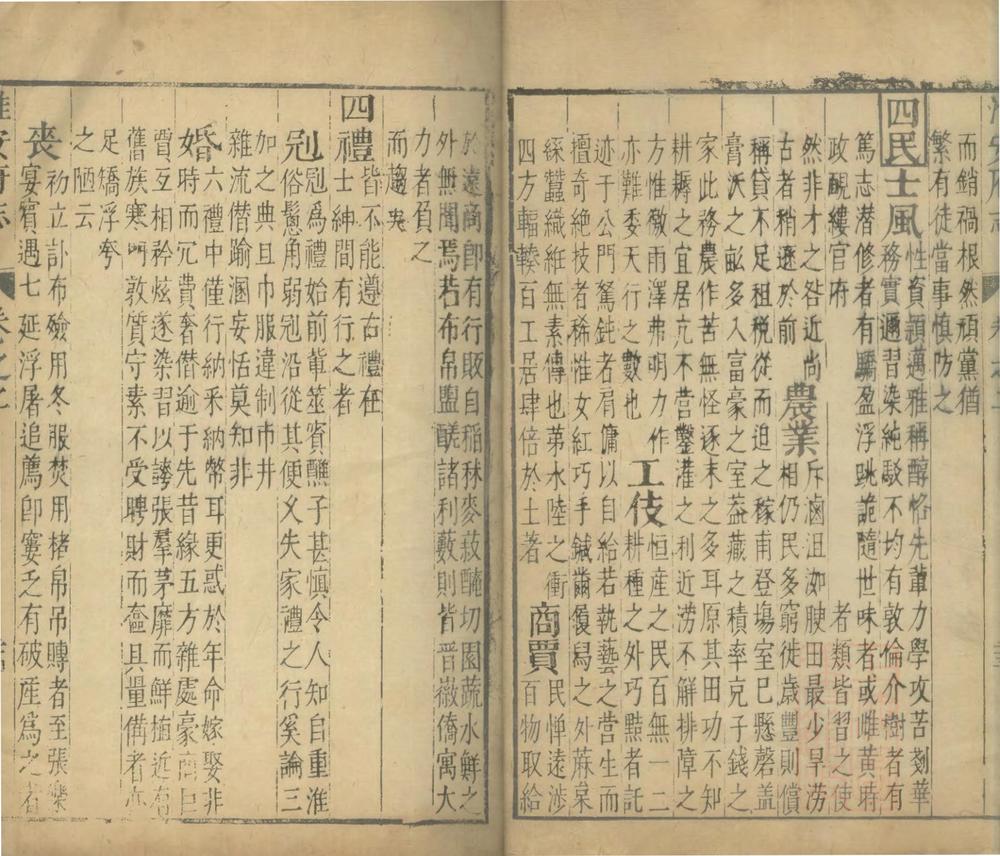 而銷禍根然頑黨猶
繁有徒當事慎防之
四民士風性資穎邁雅稱醇恪先輩力學攻苦剗華
務實邇習染純駁不均有敦倫介樹者有
篤志潛修者有驕盈浮眺詭隨世味者或雌黃時
政覼縷官府
者類皆習之使
然非才之咎近尚
古者稍遜於前
農業斥鹵沮洳腴田最少旱澇
相仍民多窮徙歲豐則償
稱貸不足租稅從而迫之稼甫登塲室已懸磬盖
膏沃之畝多入富豪之室葢藏之積率充子錢之
家此務農作苦無怪逐末之多耳原其田功不知
耕耨之宜居亢不营鑿灌之利近澇不解排障之
方惟徼雨澤弗明力作
亦難委天行之數也
工伎恒産之民百無一二
耕種之外巧黠者託
迹于公門駑鈍者肩傭以自給若執藝之营生而
擅奇絶技者稀惟女紅巧手鍼黹履舄之外蔴枲
綵蠶織維無素傳也苐水陸之衝
四方輻輳百工居肆倍於土著
商賈民惮遠涉
百物取給
於遠商卽有行販自稲秫麥菽醃切園蔬水鮮之
外無聞焉若布帛盬鹺諸利藪則皆晋徽僑寓大
力者負之
而趨矣
四禮皆不能遵古禮在
士紳間有行之者
冠冠爲禮始前輩筮賓醮子甚慎今人知自重淮
俗髫角弱冠沿從其便乂失家禮之行奚論三
加之典且巾服違制市井
雜流僣踰溷妄恬莫知非
婚六禮中僅行納采納幣耳更惑於年命嫁娶非
時而冗費奢僣逾于先昔緣五方雜處豪商巨
賈互相矜炫遂染習以誇張羣茅靡而鮮植近有
舊族寒門敦質守素不受聘財而奩具量備者亦
足矯浮夸
之陋云
喪初立訃布殮用冬服焚用楮帛吊賻者至張樂
宴賓遇七延浮屠追薦卽窶乏有破産爲之者